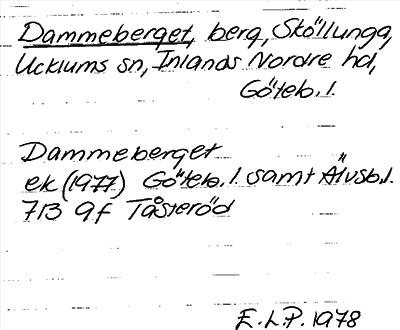 Dammeberget, berg, Sköllunga,
Ucklums sn, Inlands Nordre hd,
Göteb. l.
Dammeberget
ek (1977) Göteb. l. samt Älvsb. l.
713 9f Tåsteröd
E.L.P. 1978